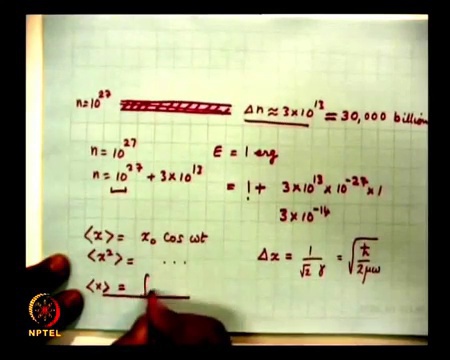 n=10²⁷ Δn ≈ 3×10¹³ = 30,000 billion
n = 10²⁷ E = 1 erg
n = 10²⁷ + 3×10¹³ = 1 + 3×10¹³×10⁻²⁷×1
3×10⁻¹⁴
⟨x⟩ = x₀ cos ωt
⟨x²⟩ = ... Δx = 1/(√2 γ) = √(ħ/2μω)
⟨x⟩ = ∫
NPTEL